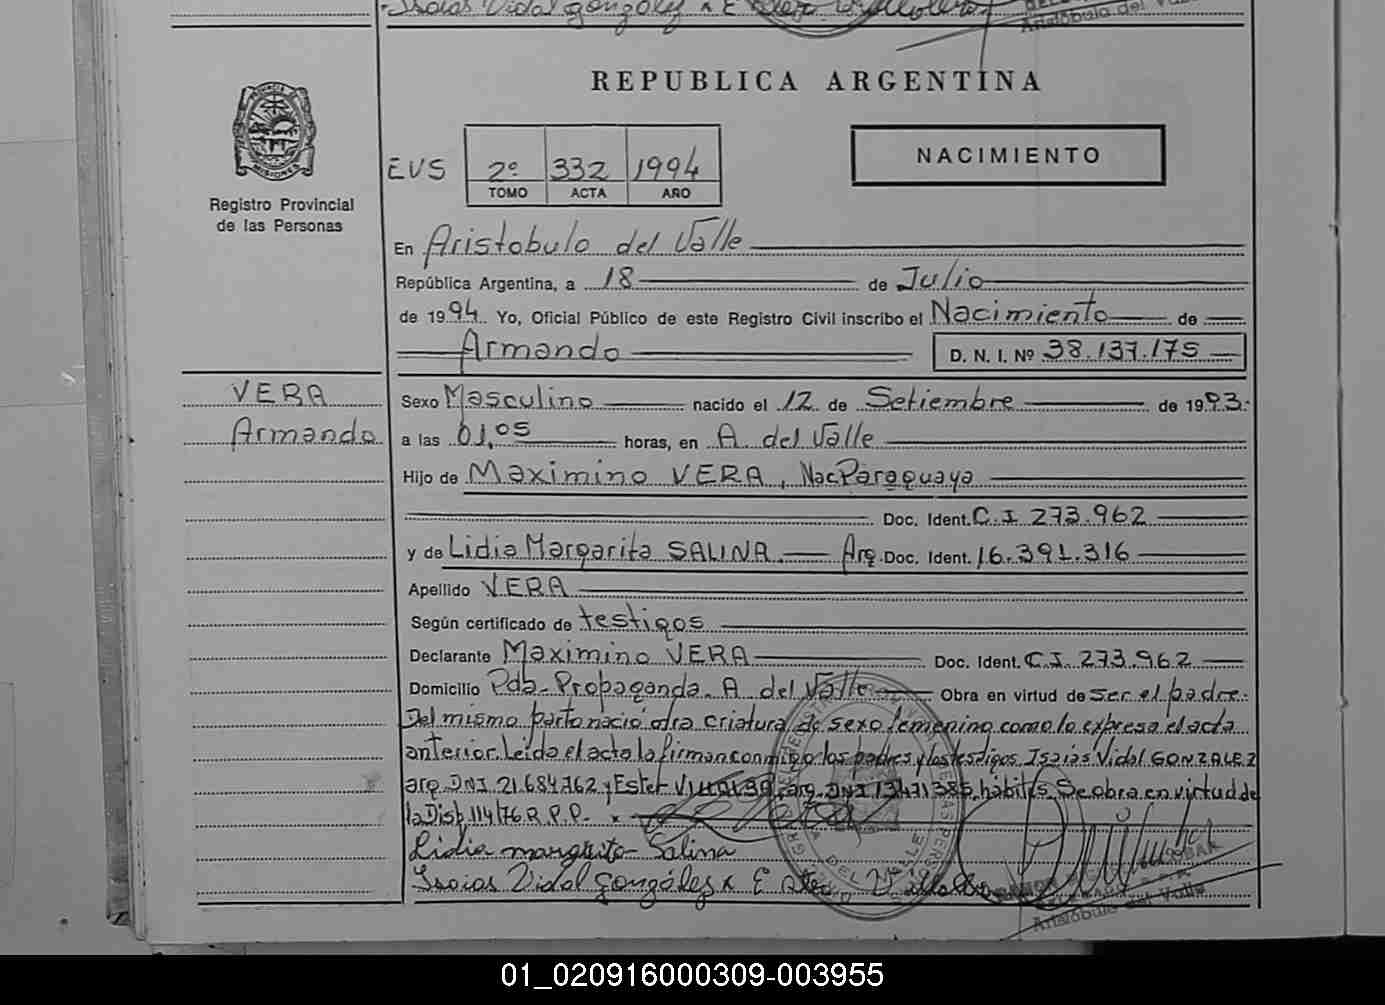 Isaias Vidal González x Ester Villalba
Aristóbulo del Valle
REPUBLICA ARGENTINA
PROVINCIA DE
MISIONES
Registro Provincial
de las Personas
EVS 2º 332 1994
TOMO ACTA AÑO
NACIMIENTO
En Aristobulo del Valle
República Argentina, a 18 de Julio
de 1994 Yo, Oficial Público de este Registro Civil inscribo el Nacimiento de
Armando D. N. I. Nº 38.137.175
VERA
Armando
Sexo Masculino nacido el 12 de Setiembre de 1993.
a las 01,05 horas, en A. del Valle
Hijo de Maximino VERA, Nac Paraguaya
Doc. Ident. C.I 273.962
y de Lidia Margarita SALINA. Arg. Doc. Ident. 16.391.316
Apellido VERA
Según certificado de testigos
Declarante Maximino VERA Doc. Ident. C.I. 273.962
Domicilio Pda. Propaganda. A. del Valle Obra en virtud de ser el padre.
Del mismo parto nació otra criatura de sexo femenino como lo expresa el acta
anterior. Leída el acta la firman conmigo los padres y los testigos Isaías Vidal GONZALEZ
arg. DNI 21.684.762 y Ester VILLALBA, arg. DNI 13471385, hábiles. Se obra en virtud de
la Disp. 114/76 R.P.P. x
Lidia margarita Salina
Isaias Vidal González x Ester Villalba
Aristóbulo del Valle
01_020916000309-003955